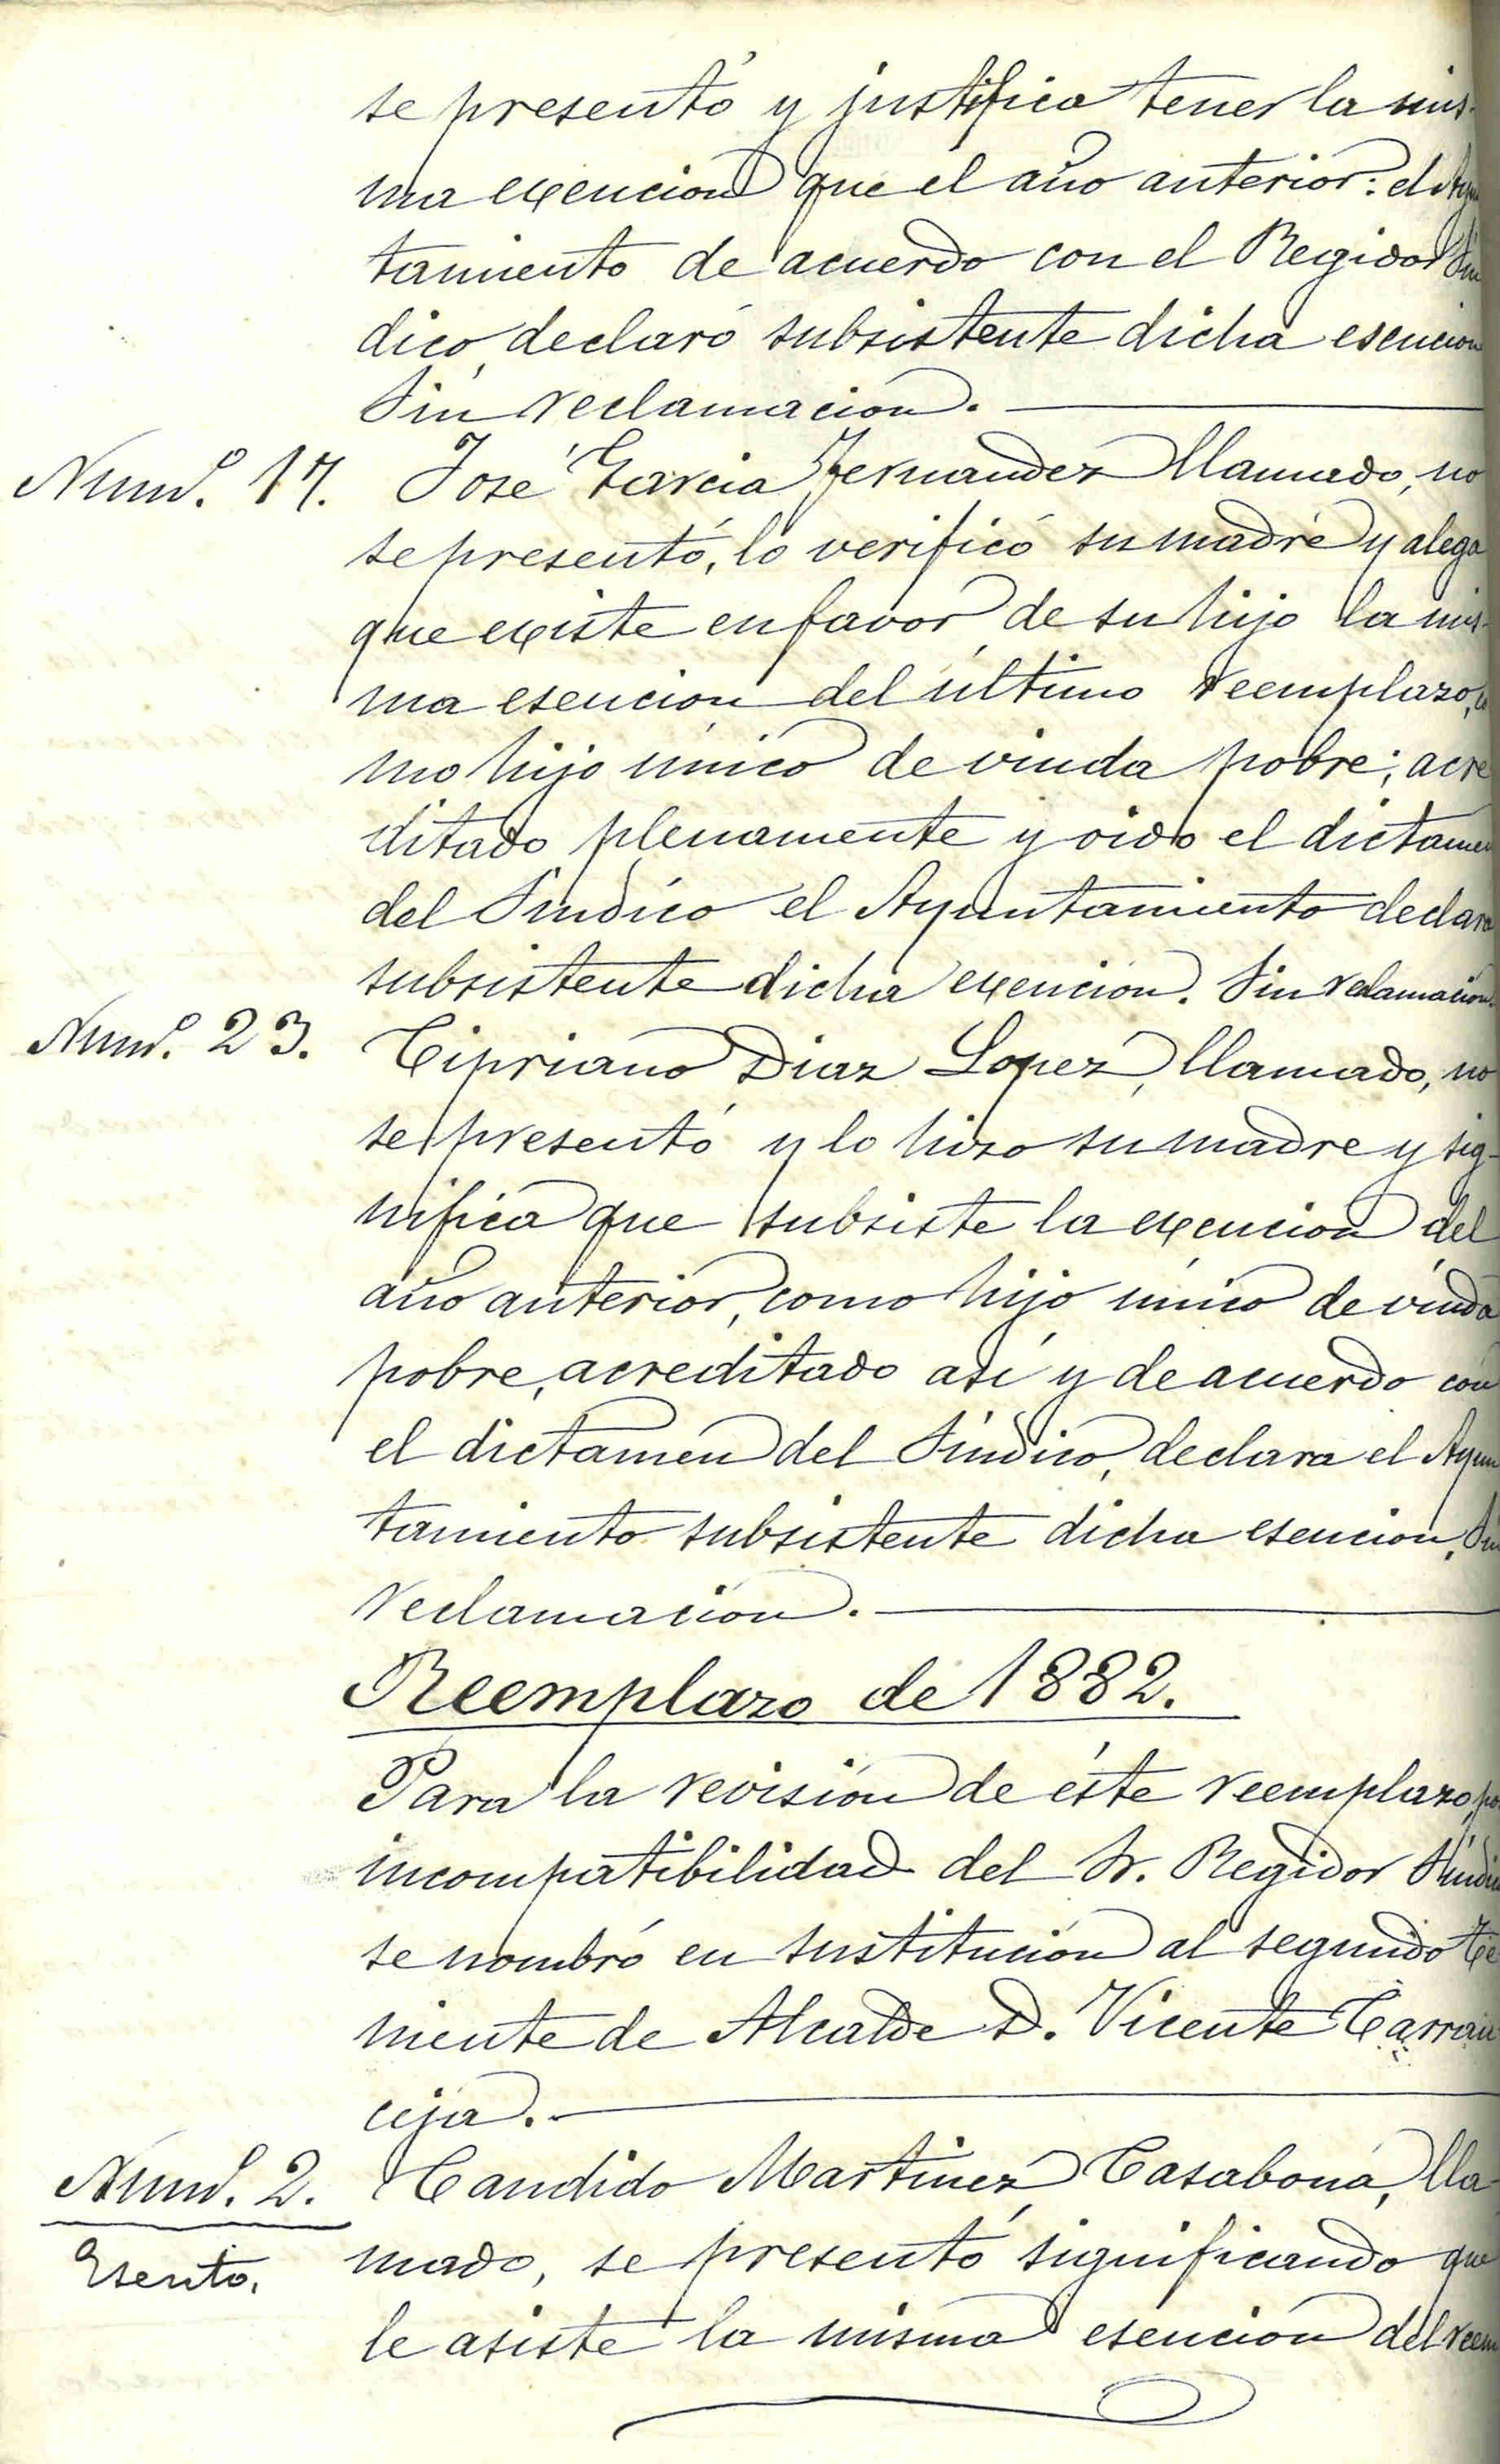 se presentó y justifica tener la mis-
ma exencion que el año anterior: el Ayun
tamiento de acuerdo con el Regidor Sin
dico, declaró subsistente dicha esencion
Sin reclamacion.
Num.º 17. José Garcia Fernandez llamado, no
se presentó, lo verificó su madre y alega
que existe en favor de su hijo la mis-
ma esencion del último reemplazo, co
mo hijo único de viuda pobre; acre
ditado plenamente y oido el dictamen
del Sindico el Ayuntamiento declara
subsistente dicha exencion. Sin reclamacion.
Num.º 23. Cipriano Diaz Lopez, llamado, no
se presentó y lo hizo su madre y sig-
nifica que subsiste la exencion del
año anterior, como hijo único de viuda
pobre, acreditado así y de acuerdo con
el dictamen del Síndico, declara el Ayun
tamiento subsistente dicha esencion, Sin
reclamación.
Reemplazo de 1882.
Para la revisión de éste reemplazo, por
incompatibilidad del Sr. Regidor Síndico
se nombró en sustitución al segundo Te
niente de Alcalde D. Vicente Carran
ceja.
Num.º 2. Candido Martinez Casabona, lla
mado, se presentó significando que
Esento.
le asiste la misma esencion del reem